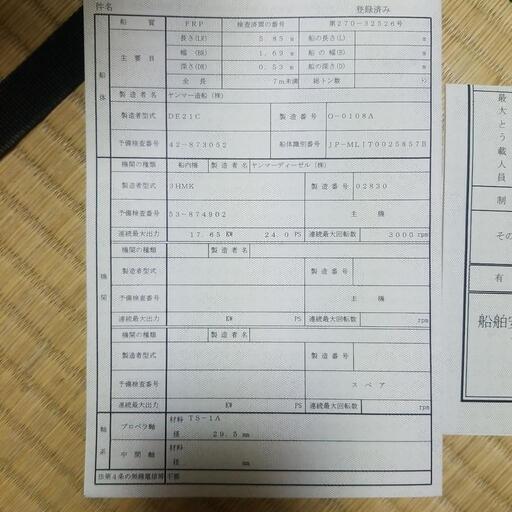 件名 登録済み
船質 FRP 検査済票の番号 第270-32526号
長さ(LR) 5.85 m 船の長さ(L) m
主要目 幅(BR) 1.69 m 船の幅(B) m
深さ(DR) 0.53 m 船の深さ(D) m
全長 7m未満 総トン数 トン
船体
製造者名 ヤンマー造船(株)
製造者型式 DE21C 製造番号 O-0108A
予備検査番号 42-873052 船体識別番号
機関の種類 船内機 製造者名 ヤンマーディーゼル(株)
製造者型式 3HMK 製造番号 02830
予備検査番号 53-874902 主機
連続最大出力 17.65 KW 24.0 PS 連続最大回転数 3000 rpm
機関の種類 製造者名
製造者型式 製造番号
機関
予備検査番号 主機
連続最大出力 KW PS 連続最大回転数 rpm
機関の種類 製造者名
製造者型式 製造番号
予備検査番号 スペア
連続最大出力 KW PS 連続最大回転数 rpm
軸系
プロペラ軸 材料 TS-1A
径 29.5 mm
中間軸 材料
径 mm
法第4条の無線電信等 不要
最大とう載人員
制
その
有
船舶安